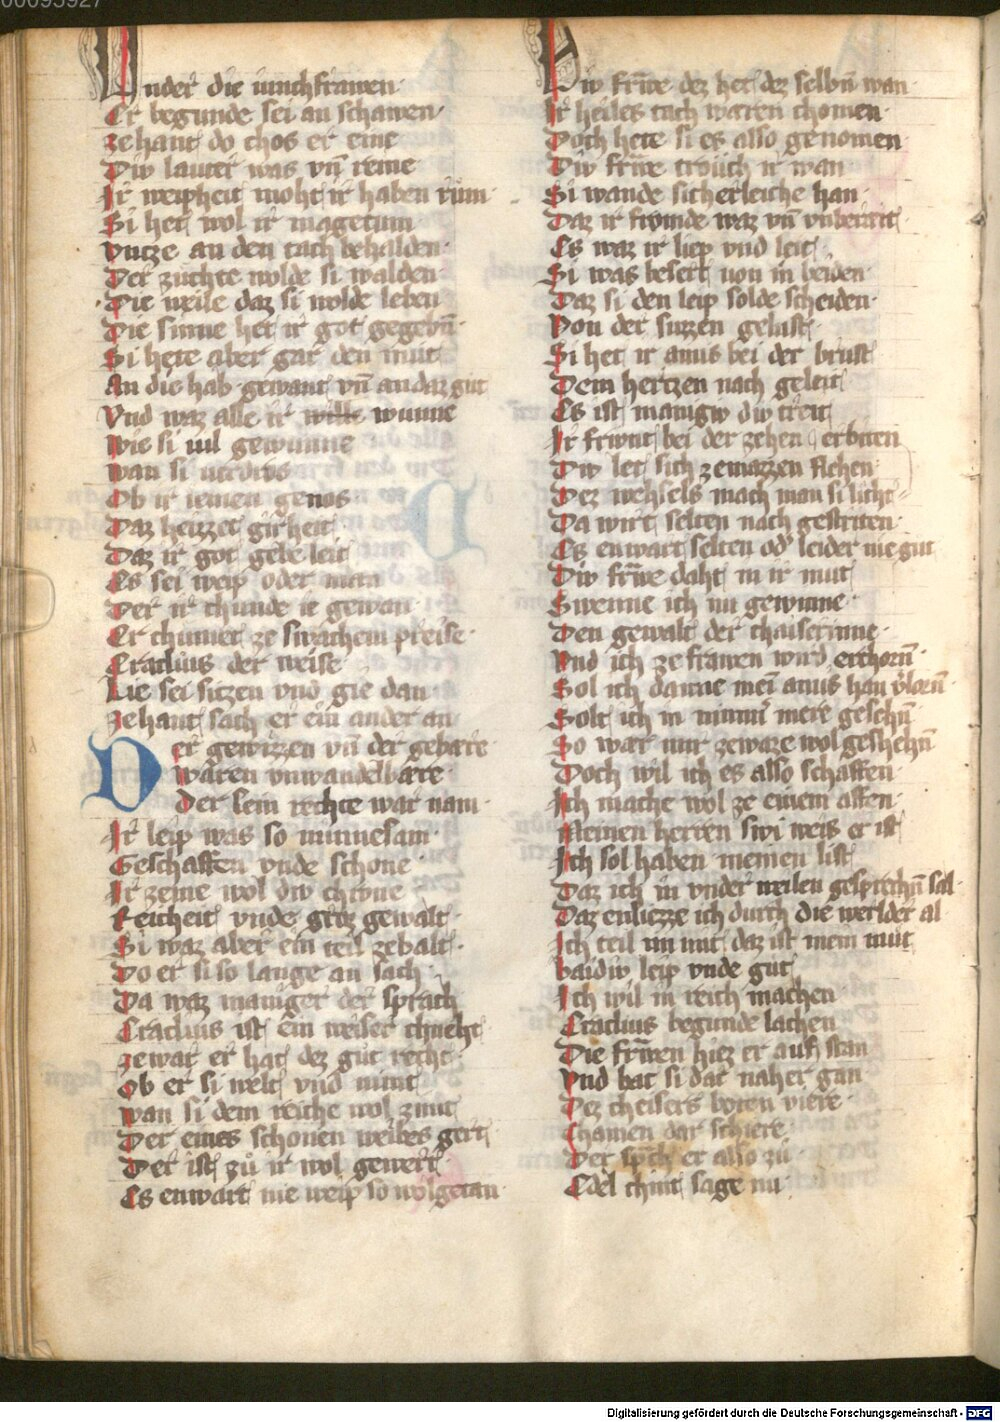 Vnder die iunchfrawen
Er begunde sei an schawen
zehant do chos er eine
Diw lauter was vn̄ reine
Ir weipheit moht ir haben rům
Si het wol ir magetum
vntze an den tach behalden
Der zuchte wolde si walden
Die weile daz si wolde leben
Die sinne het ir got gegebn̄
Si hete aber gar den můt
An die hab gewant vn̄ an daz gůt
Vnd waz alle ir wille wunne
Wie si vil gewunne
wan si verdros
Ob ir iemen genos
Daz heizzet girheit
Daz ir got gebe leit
Es sei weip oder man
Der ir chunde ie gewan
Er chumet ze swachem preise
Eraclius der weise
Lie sei sitzen vnd gie dan
zehant sach er ein ander an
Der gewizzen vn̄ der gebare
waren vnwandelbære
Der sein rechte war nam
Ir leip was so minnesam
Geschaffen vnde schone
Ir zeme wol diw chrone
Reicheit vnde groz gewalt
Si waz aber ein teil ze balt
Do er si so lange an sach
Da waz maniger der sprach
Eraclius ist ein weiser chneht
zewar er hat dez gůt recht
Ob er si welt vnd nimt
wan si dem reiche wol zimt
Der eines schonen weibes gert
Der ist zů ir wol gewert
Es enwart nie weip so wolgetan
Diw frawe dez het dez selbn̄ wan
Ir heiles tach waren chomen
Doch hete si es also genomen
Diw frawe trouch ir wan
Si wande sicherleiche han
Daz ir fromde waz vn̄ vnbereit
Es waz ir liep vnd leit
Si was besert von in beiden
Daz si den leip solde scheiden
Von der suzzen gelust
Si het ir amis bei der brust
Dem hertzen nach geleit
Es ist manigiw diw treit
Ir friunt bei der zehen erbiten
Diw let sich zemazzen flehen
Dez wehsels mach man si licht
Da wirt selten nach gestriten
Es enwart selten od' leider nie gůt
Diw frawe daht in ir můt
Swenne ich nu gewinne
Den gewalt der chaiserinne
Vnd ich ze frawen wird erchorn̄
Sol ich danne mei amis han v'lorn̄
Solt ich in nimm' mere gesehn̄
So wær mir zeware wol geschehn̄
Doch wil ich es also schaffen
Ich mache wol ze einem affen
Meinen herren swi weis er ist
Ich sol haben meinen list
Daz ich in vnder weilen gesprechn̄ sal
Daz enliezze ich durch die werlder al
Ich teil im mit daz ist mein můt
baidiw leip vnde gůt
Ich wil in reich machen
Eraclius begunde lachen
Die frawen hiez er auf stan
Vnd bat si dar naher gan
Dez cheisers boten viere
Chamen dar schiere
Der sp̄ch er also zů
Edel chint sage nu
Digitalisierung gefördert durch die Deutsche Forschungsgemeinschaft - DFG